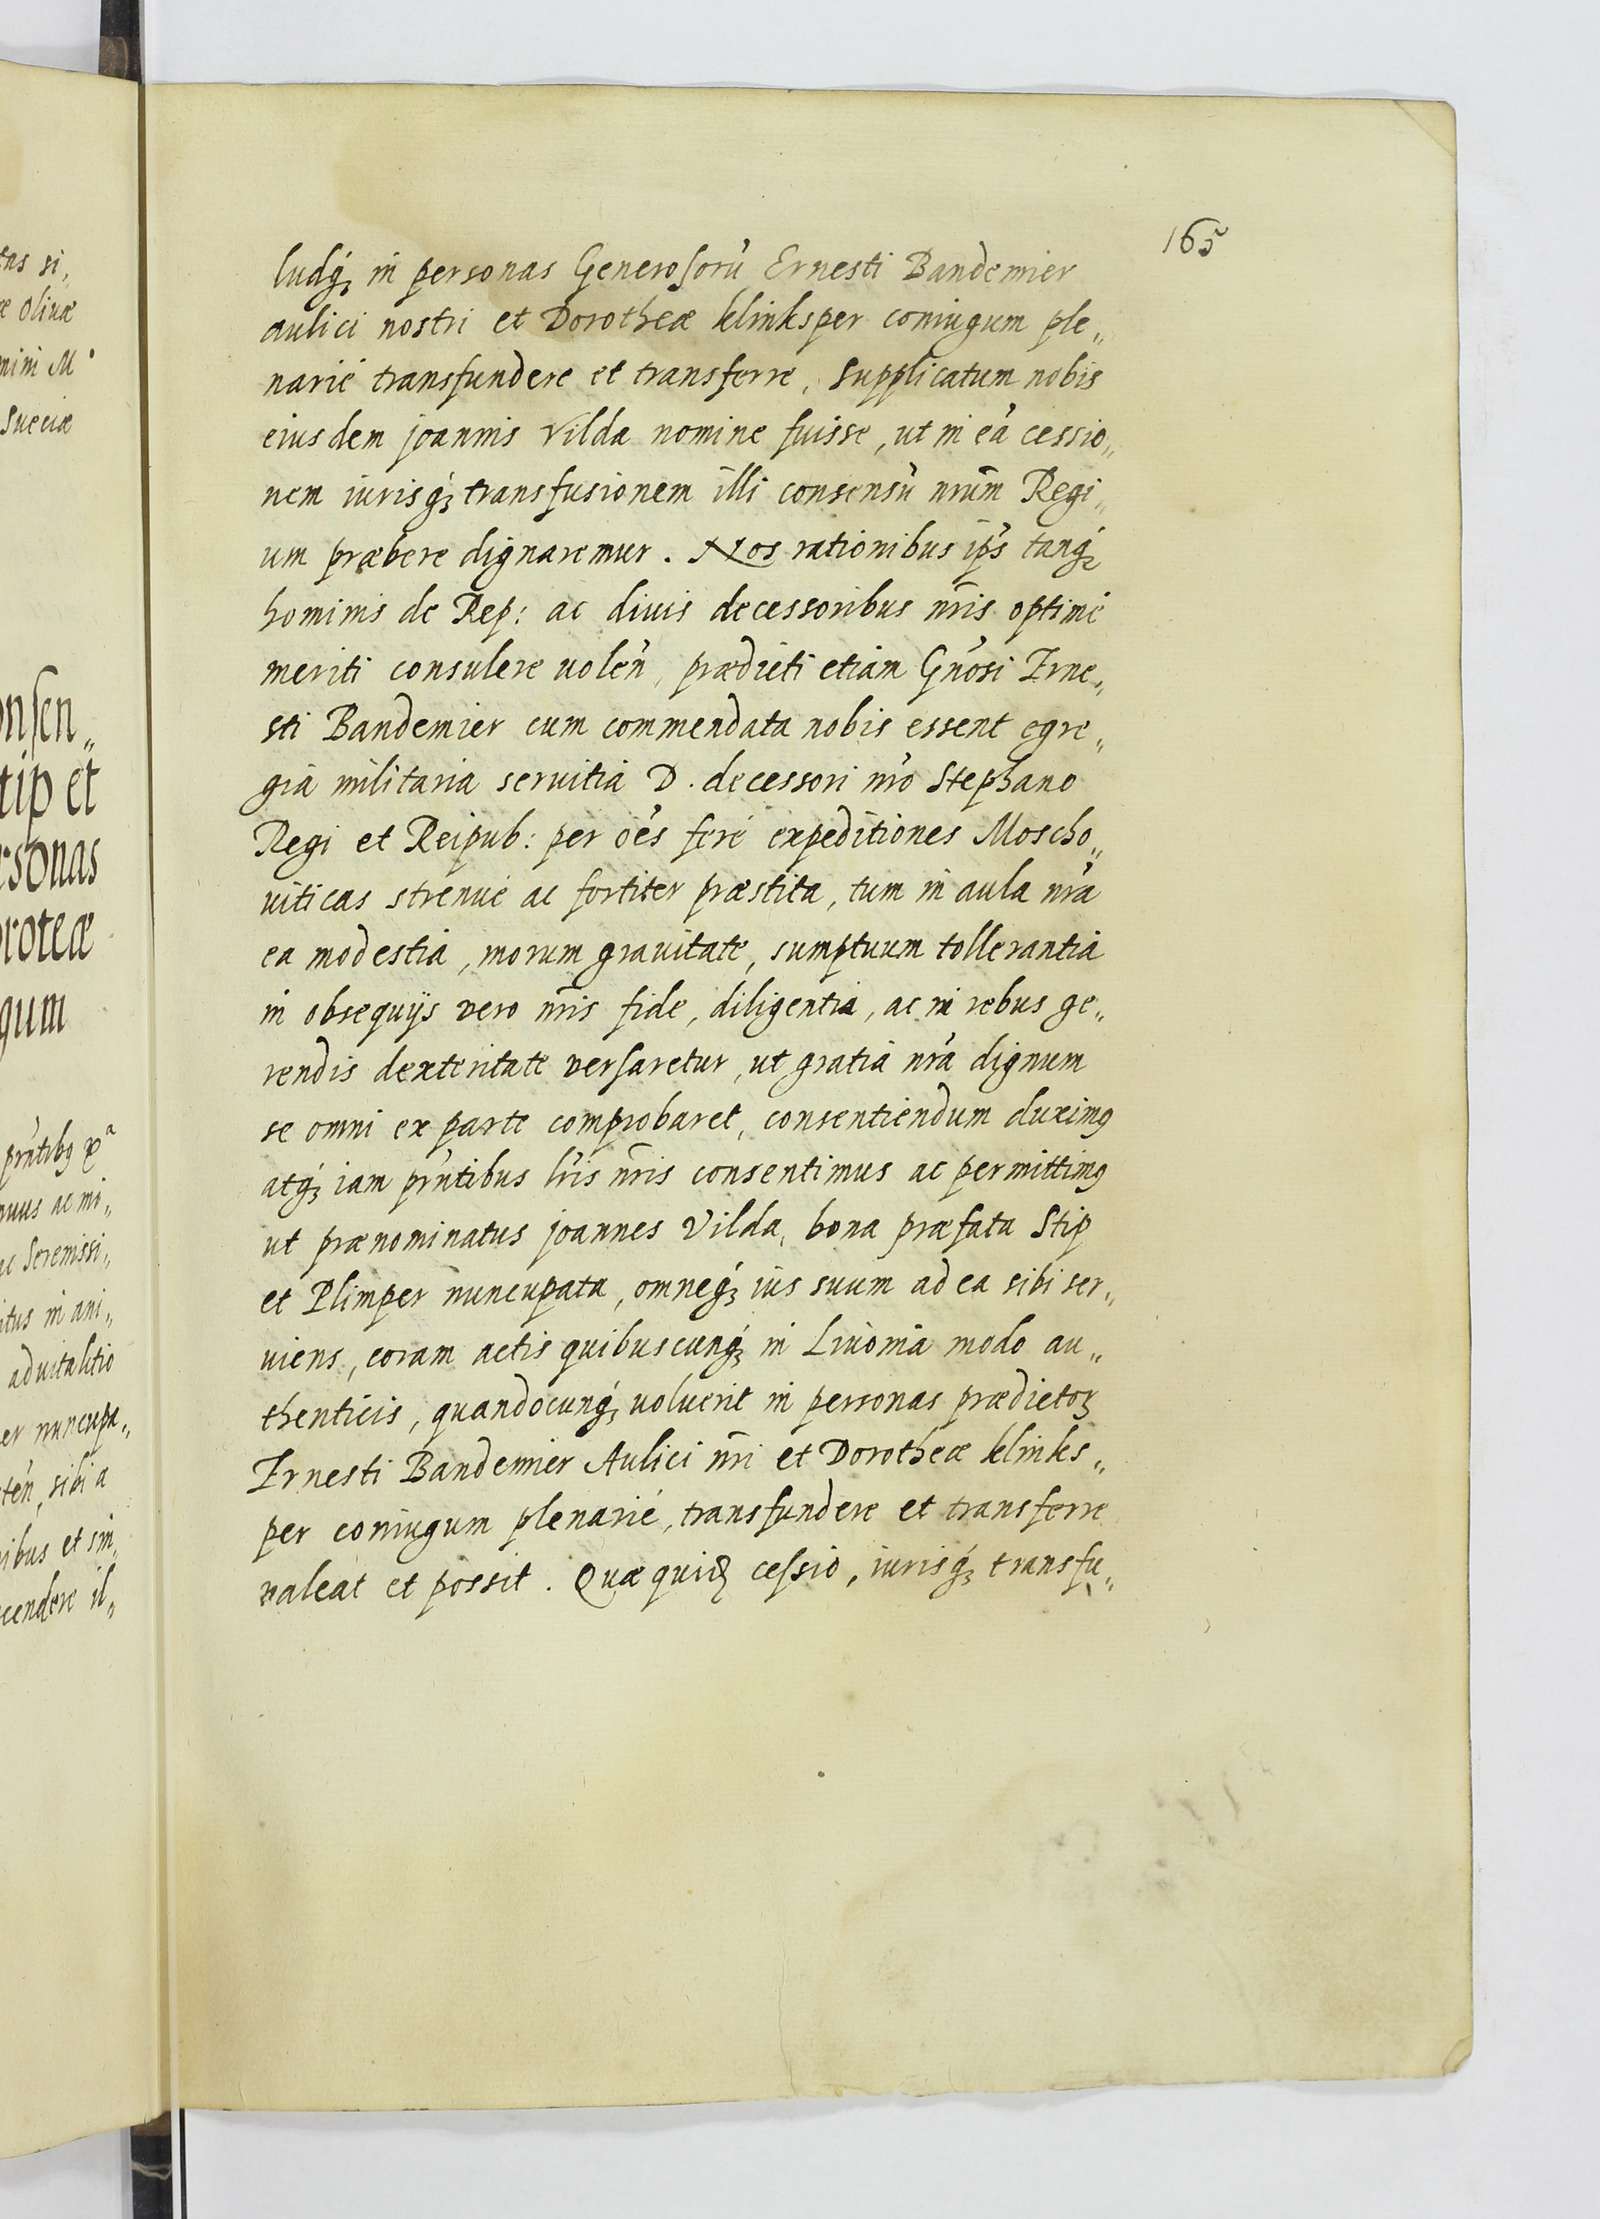 165
ludq́ꝫ in personas Generosorũ Ernesti Bandemier
aulici nostri et Dorotheæ klinksper coniugum ple„
narié transfundere et transferre, supplicatum nobis
eiusdem joannis Vilda nomine fuisse, ut in eã cessio„
nem iurisq́ꝫ transfusionem illi consensũ nrũm Regi„
um præbere dignaremur. Nos rationibus ip̃s tanq́ꝫ
hominis de Rep: ac diuis decessoribus nr̃is optimé
meriti consulere uoleñ, prædicti etiam Gño͂si Erne„
sti Bandemier cum commendata nobis essent egre„
gia militaria seruitia D. decessori nr̃o Stephano
Regi et Reipub: per oẽs feré expeditiones Moscho„
uiticas strenué ac fortiter præstita, tum in aula nr̃a
ea modestia, morum grauitate, sumptuum tollerantia
in obsequijs vero nr̃is fide, diligentia, ac in rebus ge„
rendis dexteritate versaretur, ut gratia nr̃a dignum
se omni ex parte comprobaret, consentiendum duximꝰ
atq́ꝫ iam pr̃ntibus lr̃is nr̃is consentimus ac permittimꝰ
ut prænominatus joannes Vilda, bona præfata Stip
et Plimper nuncupata, omneq́ꝫ ius suum ad ea sibi ser„
uiens, coram actis quibuscunq́ꝫ in Liuonia modo au„
thenticis, quandocunq́ꝫ uoluerit in personas prædictoꝝ
Ernesti Bandemier Aulici nr̃i et Dorotheæ klinks„
per coniugum plenarié, transfundere et transferre
valeat et possit. Quæ quidꝫ cessio, iurisq́ꝫ transfu„
tas si„
æ Oliuæ
Sueciæ
onsen„
tip et
rsonas
oroteæ
gum
pr̃ntibꝰ
nuus ac mi„
ac Serenissi„
itus in ani„
aduitalitio
er nuncupa„
teñ, sibi a
nibus et sin„
cendere il„